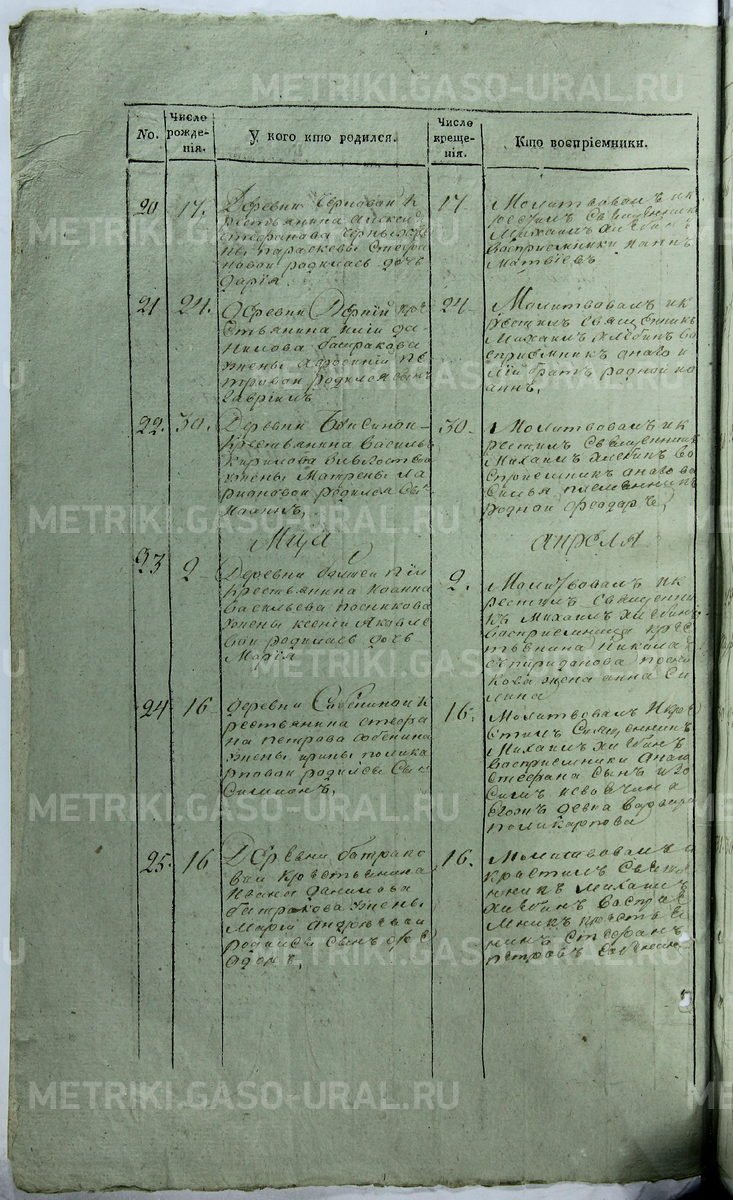 METRIKI.GASO-URAL.RU
No.
Число рожде-нія.
У кого кто родился.
Число креще-нія.
Кто воспріемники.
20
17.
Деревни
рестьянина Алексѣ
Стефанова
ны Параскевы Стефа
новой родилась дочь
Дарія
17
Молитвовалъ и к
рестилъ Священникъ
Михаилъ Хлебинъ
восприемники
Матвіевъ
21
24.
Деревни кре
стьянина Иліи Да
нилова Батракова
жены Ефросиніи Пе
тровой родился сынъ
Гавріилъ
24.
Молитвовалъ и к
рестилъ Священникъ
Михаилъ Хлебинъ во
сприемникъ онаго И
ліи братъ родной Ио
аннъ,
22.
30.
Деревни
крестьянина Василья
Кирилова
жены Матрены Ла
ріоновой родился сы
Иоаннъ,
30.
Молитвовалъ и к
рестилъ Священникъ
Михаилъ Хлебинъ во
сприемникъ онаго Ва
силья племянникъ
родной Феодоръ,
Мца
апреля
23
2
Деревни
крестьянина Иоанна
Васильева Посникова
жены Ксеніи Яковле
вой родилась дочь
Марія
2.
Молитвовалъ и к
рестилъ Священни
къ Михаилъ Хлебинъ
восприемница крес
тьянина Никила
Спиридонова Посни
кова жена Анна Си
лина
24
16
Деревни Собениной к
рестьянина Стефа
на Петрова Собенина
жены Ирины Полика
рповой родился сы
Симионъ,
16.
Молитвовалъ и кре
стилъ Священникъ
Михаилъ Хлебинъ
восприемники онаго
Стефана сынъ
девка Варвара
Поликарпова
25.
16
Деревни Батрако
вой крестьянина
Ивана Данилова
Батракова жены
Маріи Андреевой
родился сынъ
16.
Молитвовалъ и
крестилъ Священ
никъ Михаилъ
Хлебинъ восприе
мникъ крестья
нинъ Стефанъ
Петровъ Собенинъ